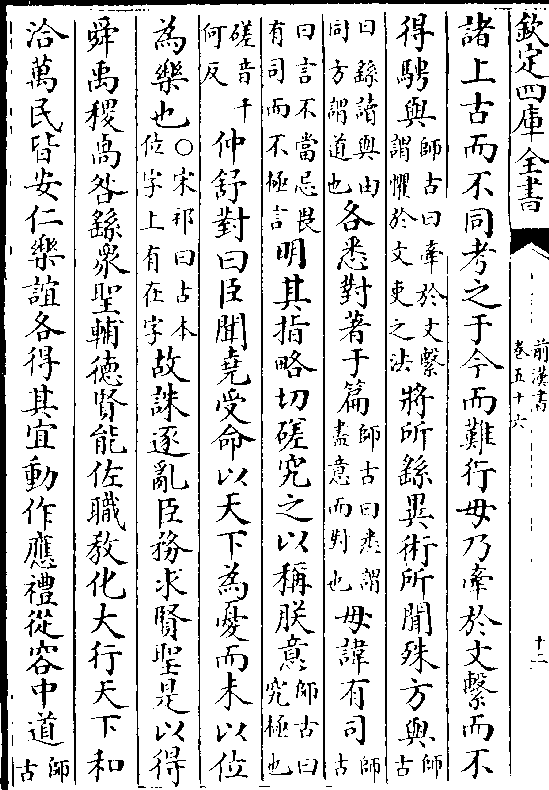 欽定四庫全書
前漢書
卷五十六
十二
諸上古而不同考之于今而難行毋乃牽於文繫而不
得騁與師古曰牽於文繫謂懼於文吏之法將所繇異術所聞殊方與師古
曰繇讀與由同方謂道也各悉對著于篇師古曰悉謂盡意而對也毋諱有司師古
曰言不當忌畏有司而不極言明其指略切磋究之以稱朕意師古曰究極也
磋音千何反仲舒對曰臣聞堯受命以天下為憂而未以位
為樂也○宋祁曰古本位字上有在字故誅逐亂臣務求賢聖是以得
舜禹稷卨咎繇衆聖輔德賢能佐職教化大行天下和
洽萬民皆安仁樂誼各得其宜動作應禮從容中道師古